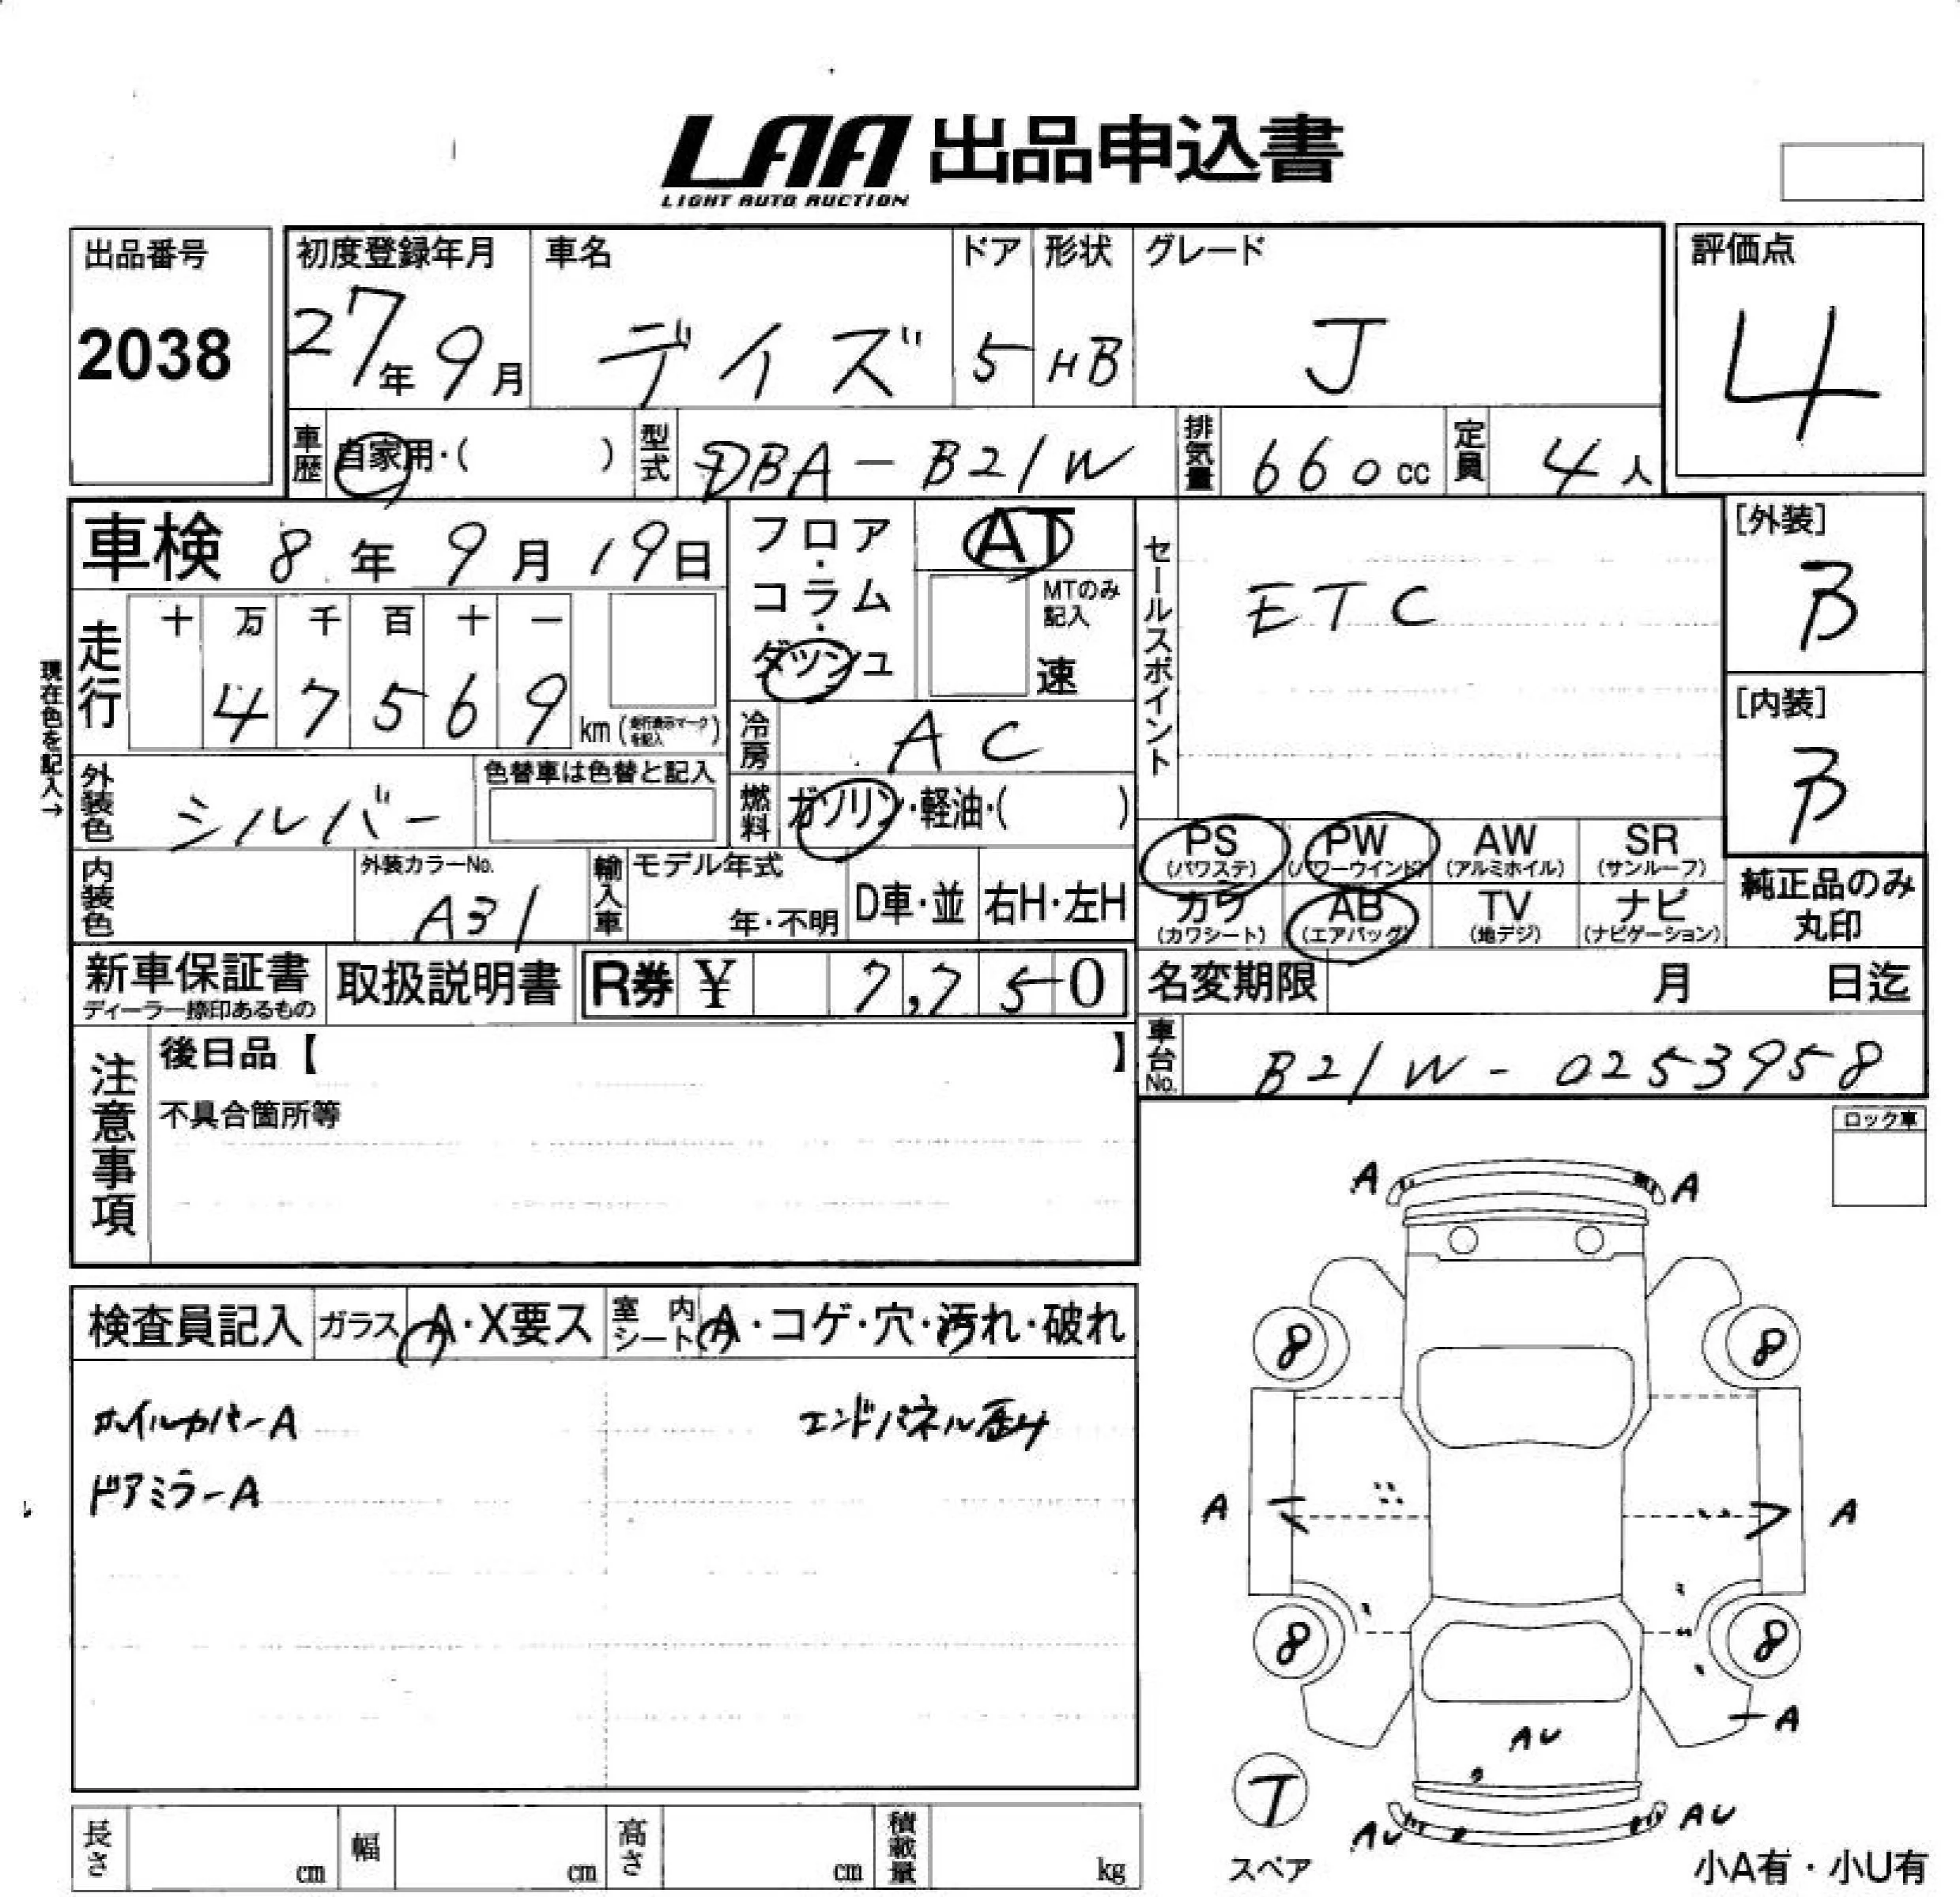 LAA 出品申込書
LIGHT AUTO AUCTION
出品番号
2038
初度登録年月
27年 9月
車名
デイズ
ドア
5
形状
HB
グレード
J
評価点
4
車歴
自家用・( )
型式
DBA-B21W
排気量
660cc
定員
4人
車検 8年 9月 19日
フロア・コラム・ダッシュ
AT
MTのみ記入
速
セールスポイント
ETC
[外装]
B
[内装]
B
現在色を記入→
走行
十 万 千 百 十 一
4 7 5 6 9 km (走行表示マークを記入)
冷房
AC
外装色
シルバー
色替車は色替と記入
燃料
ガソリン・軽油・( )
PS (パワステ)
PW (パワーウインド)
AW (アルミホイル)
SR (サンルーフ)
カワ (カワシート)
AB (エアバッグ)
TV (地デジ)
ナビ (ナビゲーション)
純正品のみ丸印
内装色
外装カラーNo.
A31
輸入車
モデル年式
年・不明
D車・並
右H・左H
新車保証書
ディーラー捺印あるもの
取扱説明書
R券 ¥ 7,750
名変期限 月 日迄
車台No.
B21W-0253958
注意事項
後日品【 】
不具合箇所等
ロック車
検査員記入
ガラス A・X要ス
室内シート A・コゲ・穴・汚れ・破れ
ホイルカバーA
エンドパネル歪み
ドアミラーA
A A
8 8
A A
8 8
A
AU
T
スペア
AU AU
小A有・小U有
長さ cm
幅 cm
高さ cm
積載量 kg